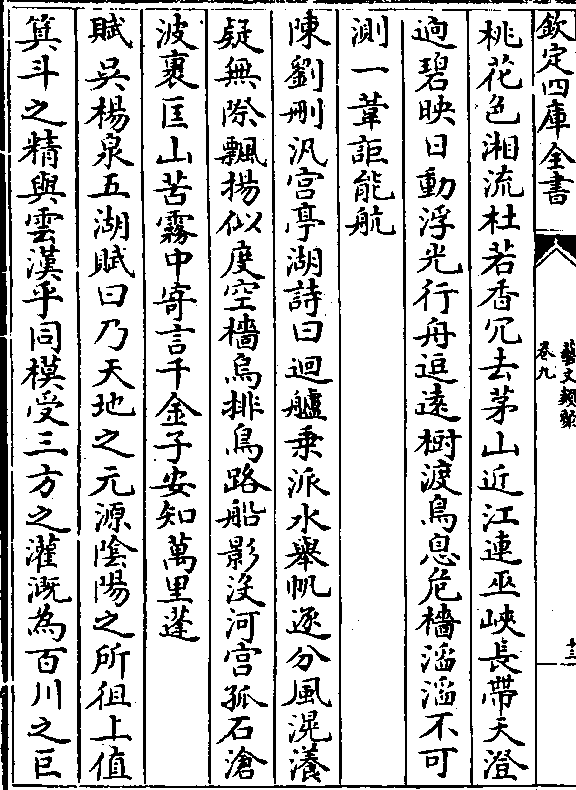 欽定四庫全書
藝文類聚
卷九
十二
桃花色湘流杜若香冗去茅山近江連巫峽長帶天澄
逈碧映日動浮光行舟逗遠樹渡鳥息危檣滔滔不可
測一葦詎能航
陳劉刪汎宫亭湖詩曰迴艫乗派水舉帆逐分風滉瀁
疑無際飄揚似度空檣烏排鳥路船影没河宫孤石滄
波裏匡山苦霧中寄言千金子安知萬里蓬
賦吳楊泉五湖賦曰乃天地之元源陰陽之所徂上值
箕斗之精與雲漢乎同模受三方之灌溉為百川之巨